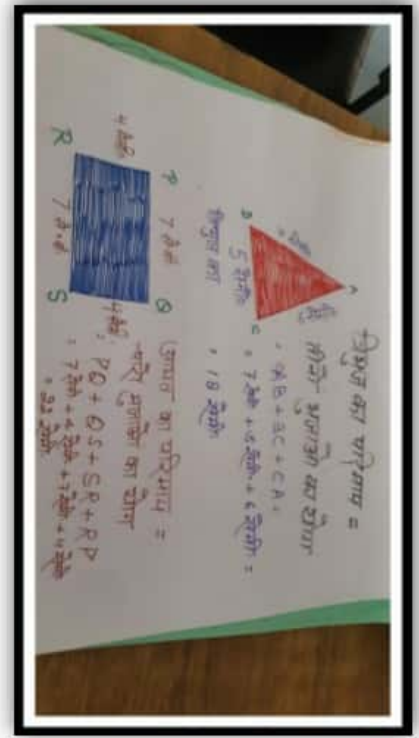 त्रिभुज का परिमाप =
तीनो भुजाओ का योग
= AB + BC + CA =
= 7 सेमी + 5 सेमी + 6 सेमी =
= 18 सेमी
A
B
C
5 सेमी
त्रिभुज का
आयत का परिमाप =
चारो भुजाओ का योग
PQ + QS + SR + RP
= 7 सेमी + 4 सेमी + 7 सेमी + 4 सेमी
= 22 सेमी
P 7 सेमी Q
4 सेमी
4 सेमी
R 7 सेमी S